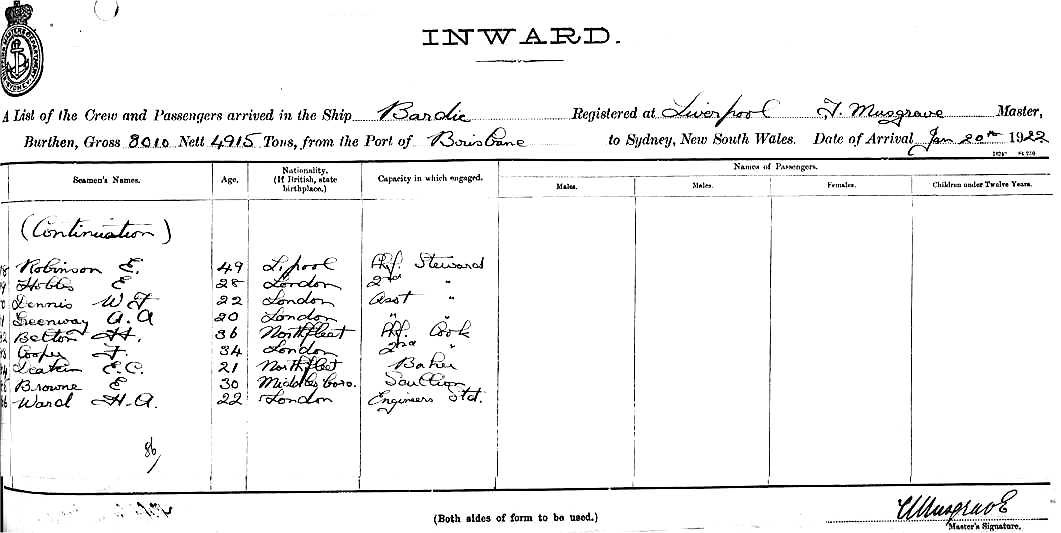 INWARD.
A List of the Crew and Passengers arrived in the Ship Bardic Registered at Liverpool F. Musgrave Master,
Burthen, Gross 8010 Nett 4915 Tons, from the Port of Brisbane to Sydney, New South Wales. Date of Arrival Jan 20th 1922
Seamen's Names. Age. Nationality. (If British, state birthplace.) Capacity in which engaged. Names of Passengers.
Males. Males. Females. Children under Twelve Years.
(Continuation)
Robinson E. 49 L'pool Chf. Steward
Hobbs E 28 London 2nd "
Dennis W F 22 London Asst "
Greenway A. A 20 London " "
Belton H. 36 Northfleet Chf. Cook
Cooper F. 34 London 2nd "
Deakin E.C. 21 Northfleet Baker
Browne E 30 Middlesboro. Scullion
Ward H.A. 22 London Engineers Std.
86/
(Both sides of form to be used.)
Musgrave
Master's Signature.